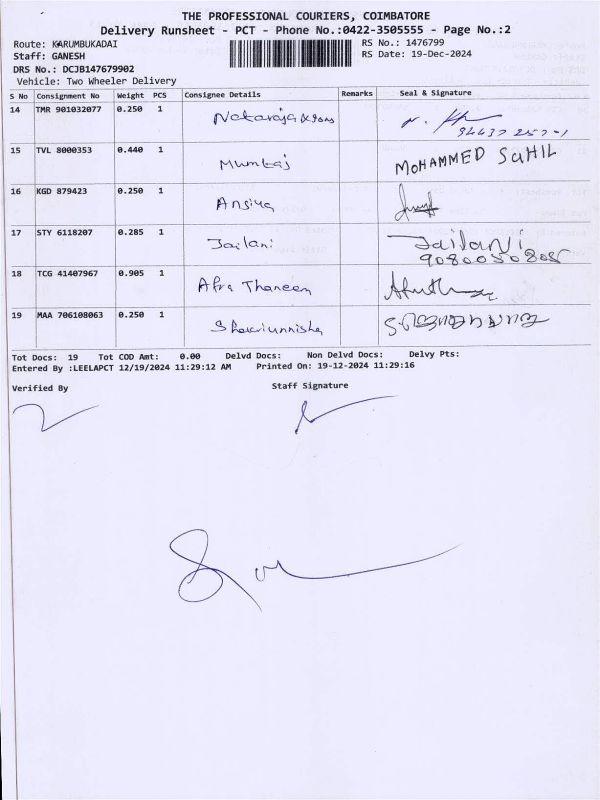 THE PROFESSIONAL COURIERS, COIMBATORE
Delivery Runsheet - PCT - Phone No.:0422-3505555 - Page No.:2
Route: KARUMBUKADAI
RS No.: 1476799
Staff: GANESH
RS Date: 19-Dec-2024
DRS No.: DCJB147679902
Vehicle: Two Wheeler Delivery
S No Consignment No Weight PCS Consignee Details Remarks Seal & Signature
14 TMR 901032077 0.250 1 Nataraja & sons
15 TVL 8000353 0.440 1 Mumtaj MOHAMMED SUHIL
16 KGD 879423 0.250 1 Ansiya
17 STY 6118207 0.285 1 Jailani Jailani
9080050805
18 TCG 41407967 0.905 1 Afra Thaneen
19 MAA 706108063 0.250 1 Shakiunnisha
Tot Docs: 19 Tot COD Amt: 0.00 Delvd Docs: Non Delvd Docs: Delvy Pts:
Entered By :LEELAPCT 12/19/2024 11:29:12 AM Printed On: 19-12-2024 11:29:16
Verified By Staff Signature